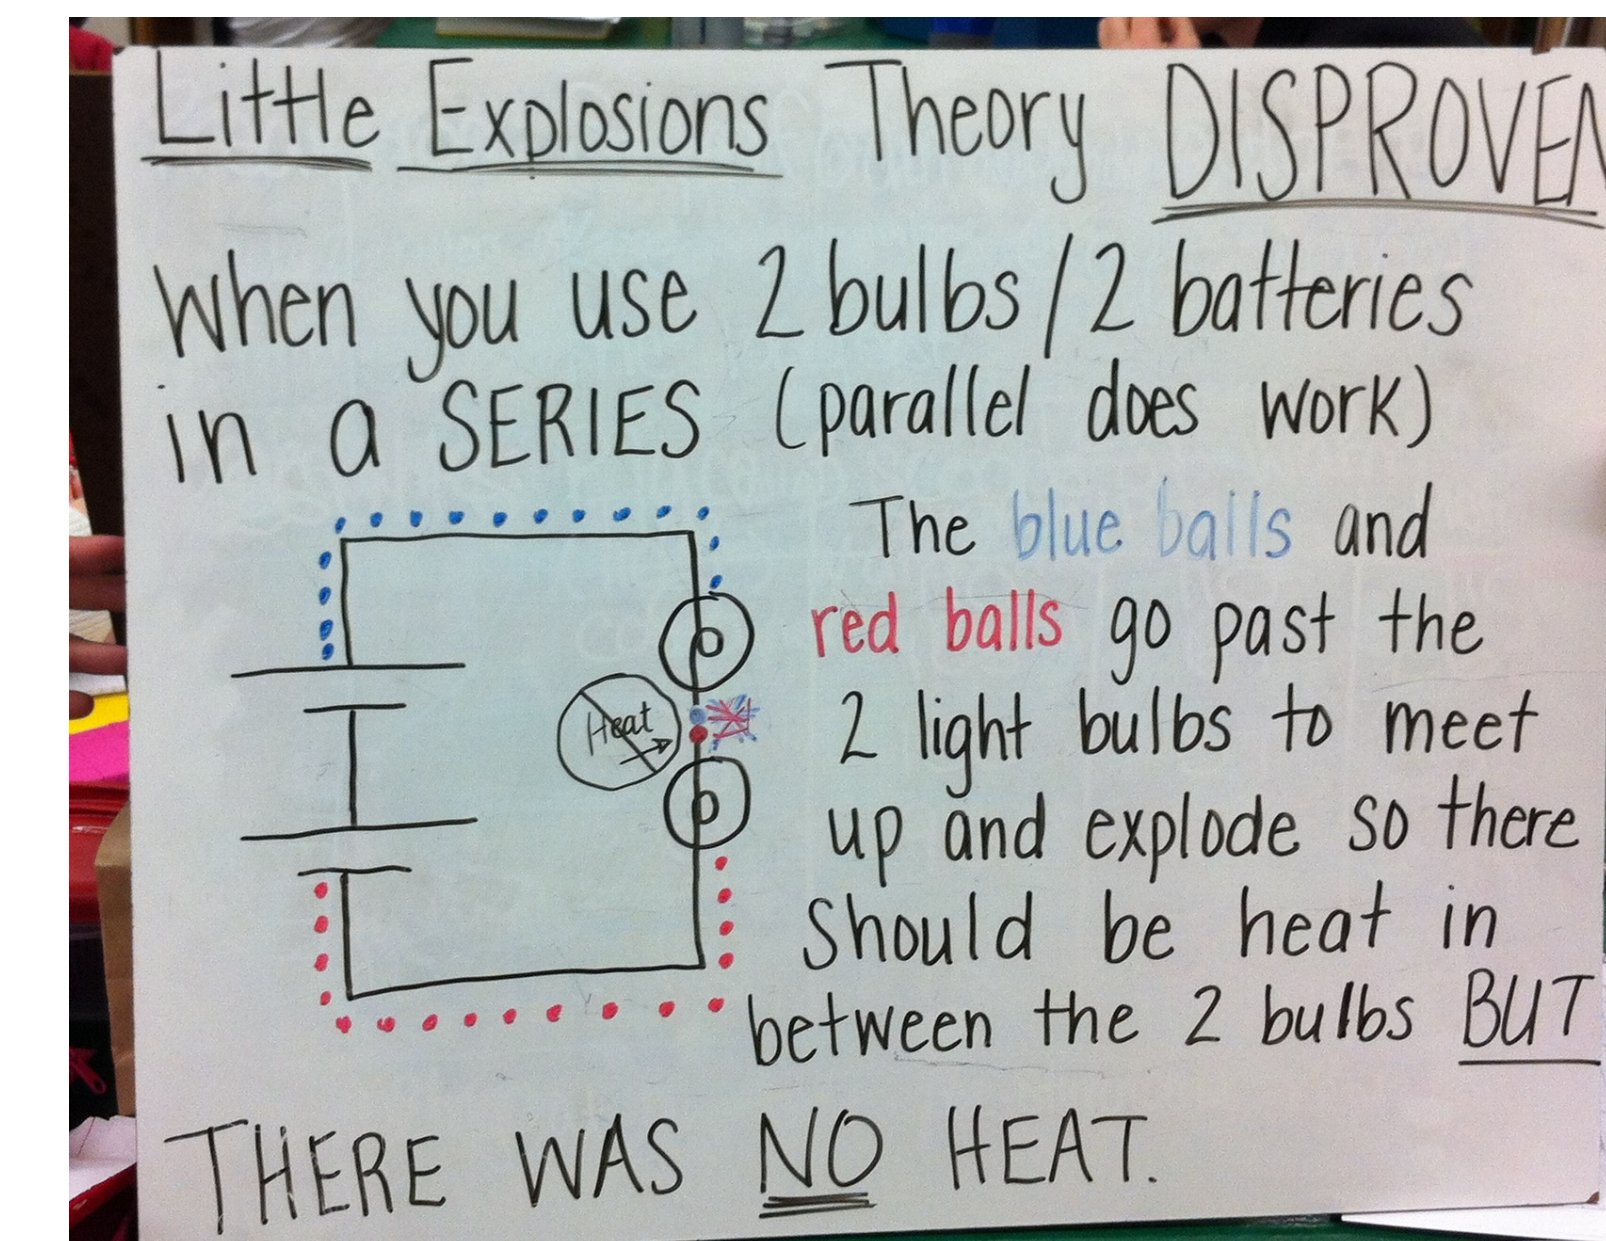 Little Explosions Theory DISPROVEN
When you use 2 bulbs/2 batteries
in a SERIES (parallel does work)
The blue balls and
red balls go past the
Heat
2 light bulbs to meet
up and explode so there
should be heat in
between the 2 bulbs BUT
THERE WAS NO HEAT.